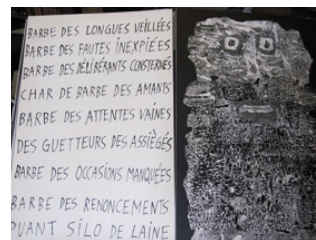 BARBE DES LONGUES VEILLÉES
BARBE DES FAUTES INEXPIÉES
BARBE DES DÉLIBÉRANTS CONSTERNÉS
CHAR DE BARBE DES AMANTS
BARBE DES ATTENTES VAINES
DES GUETTEURS DES ASSIÉGÉS
BARBE DES OCCASIONS MANQUÉES
BARBE DES RENONCEMENTS
PUANT SILO DE LAINE